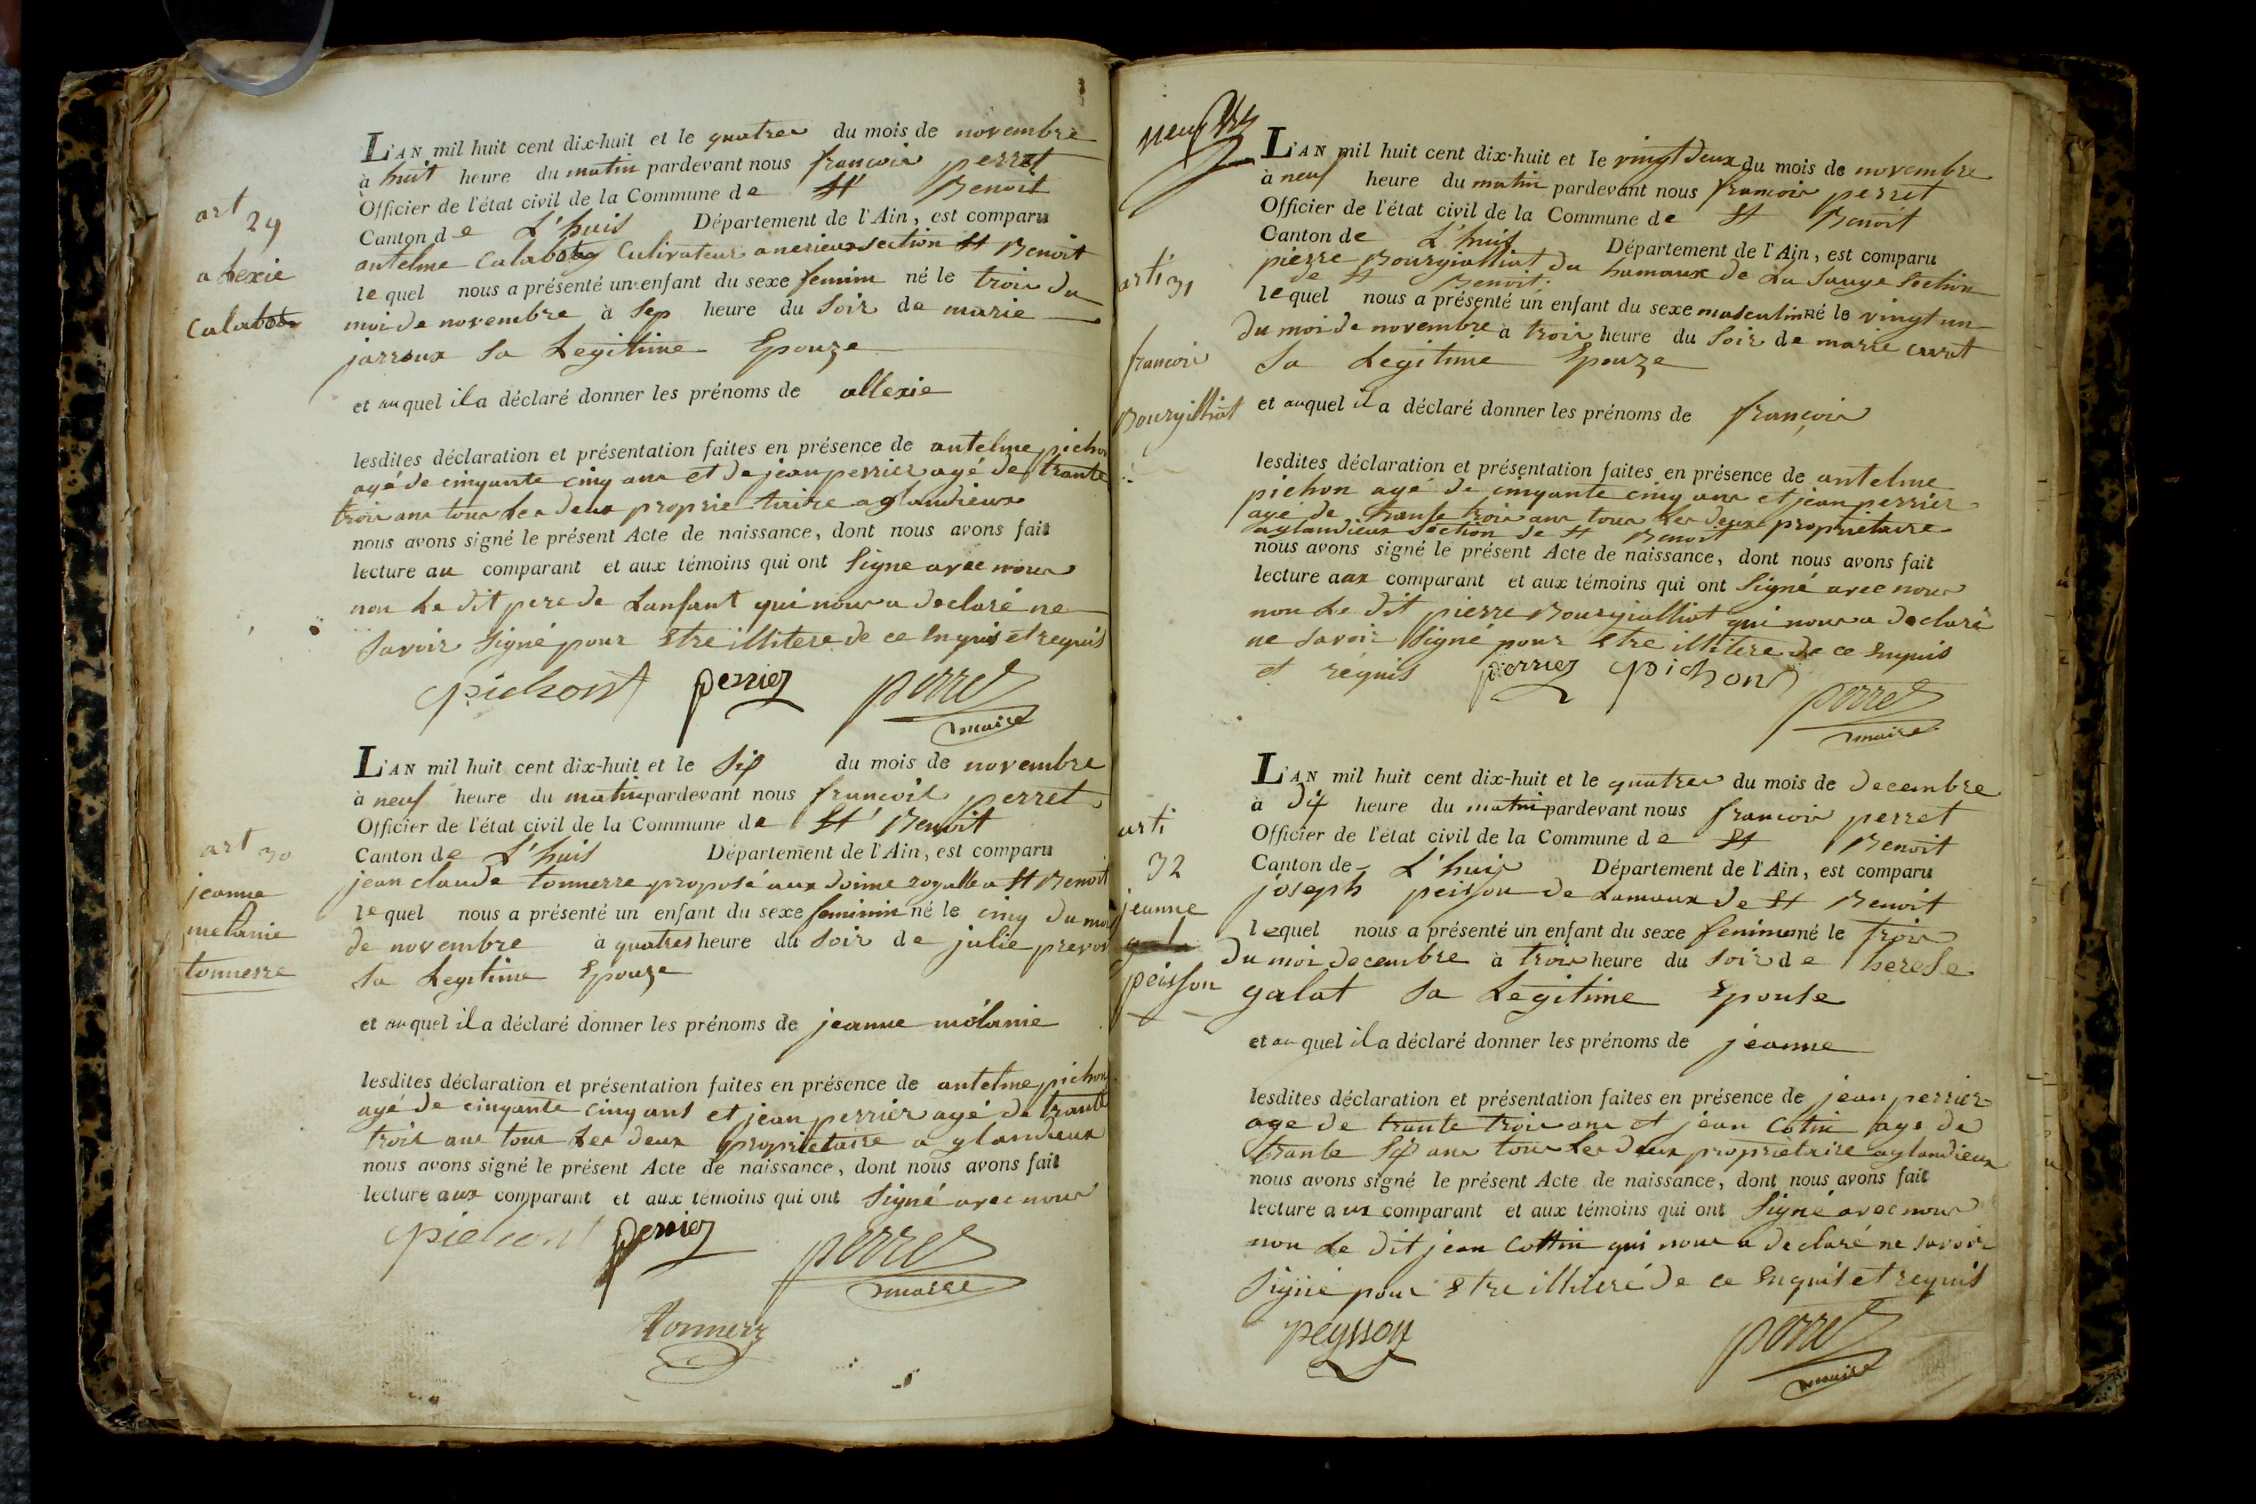 art
29
alexie
Calabot
L'AN mil huit cent dix-huit et le quatre du mois de novembre
à huit heure du matin pardevant nous francois perret
Officier de l'état civil de la Commune de St Benoit
Canton de L'huis Département de l'Ain, est comparu
antelme Calabot Culivateur section St Benoit
lequel nous a présenté un enfant du sexe feminin né le trois du
moi de novembre à sep heure du soir de marie
jarroux sa Legitime Epouze
et auquel il a déclaré donner les prénoms de allexie
lesdites déclaration et présentation faites en présence de antelme pichon
agé de cinquante cinq ans et de jean perrier agé de trante
trois ans tous Les deux proprietaire a glandieux
nous avons signé le présent Acte de naissance, dont nous avons fait
lecture au comparant et aux témoins qui ont signe avec nous
non Le dit pere de Lanfant qui nous a declaré ne
savoir signé pour Etre illitere de ce Enquis et requis
pichont perrier perret
maire
art 30
jeanne
melanie
tonnerre
L'AN mil huit cent dix-huit et le six du mois de novembre
à neuf heure du matin pardevant nous francois perret
Officier de l'état civil de la Commune de St Benoit
Canton de L'huis Département de l'Ain, est comparu
jean claude tonnerre proposé aux doine royalle a St Benoit
lequel nous a présenté un enfant du sexe feminin né le cinq du moi
de novembre à quatres heure du soir de julie prevos
sa Legitime Epouze
et auquel il a déclaré donner les prénoms de jeanne mélanie
lesdites déclaration et présentation faites en présence de antelme pichon
agé de cinquante cinq ans et jean perrier agé de trante
trois ans tous Les deux proprietaire a glandieux
nous avons signé le présent Acte de naissance, dont nous avons fait
lecture aux comparant et aux témoins qui ont signé avec nous
pichont perrier perret
maire
tonnerre
neuf
arti 31
francois
Bourgilliat
L'AN mil huit cent dix-huit et le vingt deux du mois de novembre
à neuf heure du matin pardevant nous francois perret
Officier de l'état civil de la Commune de St Benoit
Canton de L'huis Département de l'Ain, est comparu
pierre Bourgialliat du hamaux de La Sauge Section
de St Benoit
lequel nous a présenté un enfant du sexe masculin né le vingt un
du moi de novembre à trois heure du soir de marie curet
sa Legitime Epouze
et auquel il a déclaré donner les prénoms de françois
lesdites déclaration et présentation faites en présence de antelme
pichon agé de cinquante cinq ans et jean perrier
agé de trante trois ans tous Les deux proprietaire
a glandieux Section de St Benoit
nous avons signé le présent Acte de naissance, dont nous avons fait
lecture aux comparant et aux témoins qui ont signé avec nous
non Le dit pierre Bourgialliat qui nous a declaré
ne savoir signé pour Etre illitere de ce Enquis
et requis perrier pichont
perret
maire
arti
32
jeanne
peisson
L'AN mil huit cent dix-huit et le quatre du mois de decembre
à dix heure du matin pardevant nous francois perret
Officier de l'état civil de la Commune de St Benoit
Canton de L'huis Département de l'Ain, est comparu
joseph peisson de Lamaux de St Benoit
lequel nous a présenté un enfant du sexe feminene né le trois
du moi decembre à trois heure du soir de therese
galat sa Legitime Epouse
et auquel il a déclaré donner les prénoms de jeanne
lesdites déclaration et présentation faites en présence de jean perrier
age de trante trois ans et jean Cotin age de
trante six ans tous Les deux proprietaire a glandieux
nous avons signé le présent Acte de naissance, dont nous avons fait
lecture aux comparant et aux témoins qui ont signé avec nous
non Le dit jean Cottin qui nous a declaré ne savoir
signé pour Etre illiteré de ce Enquis et requis
peysson perret
maire